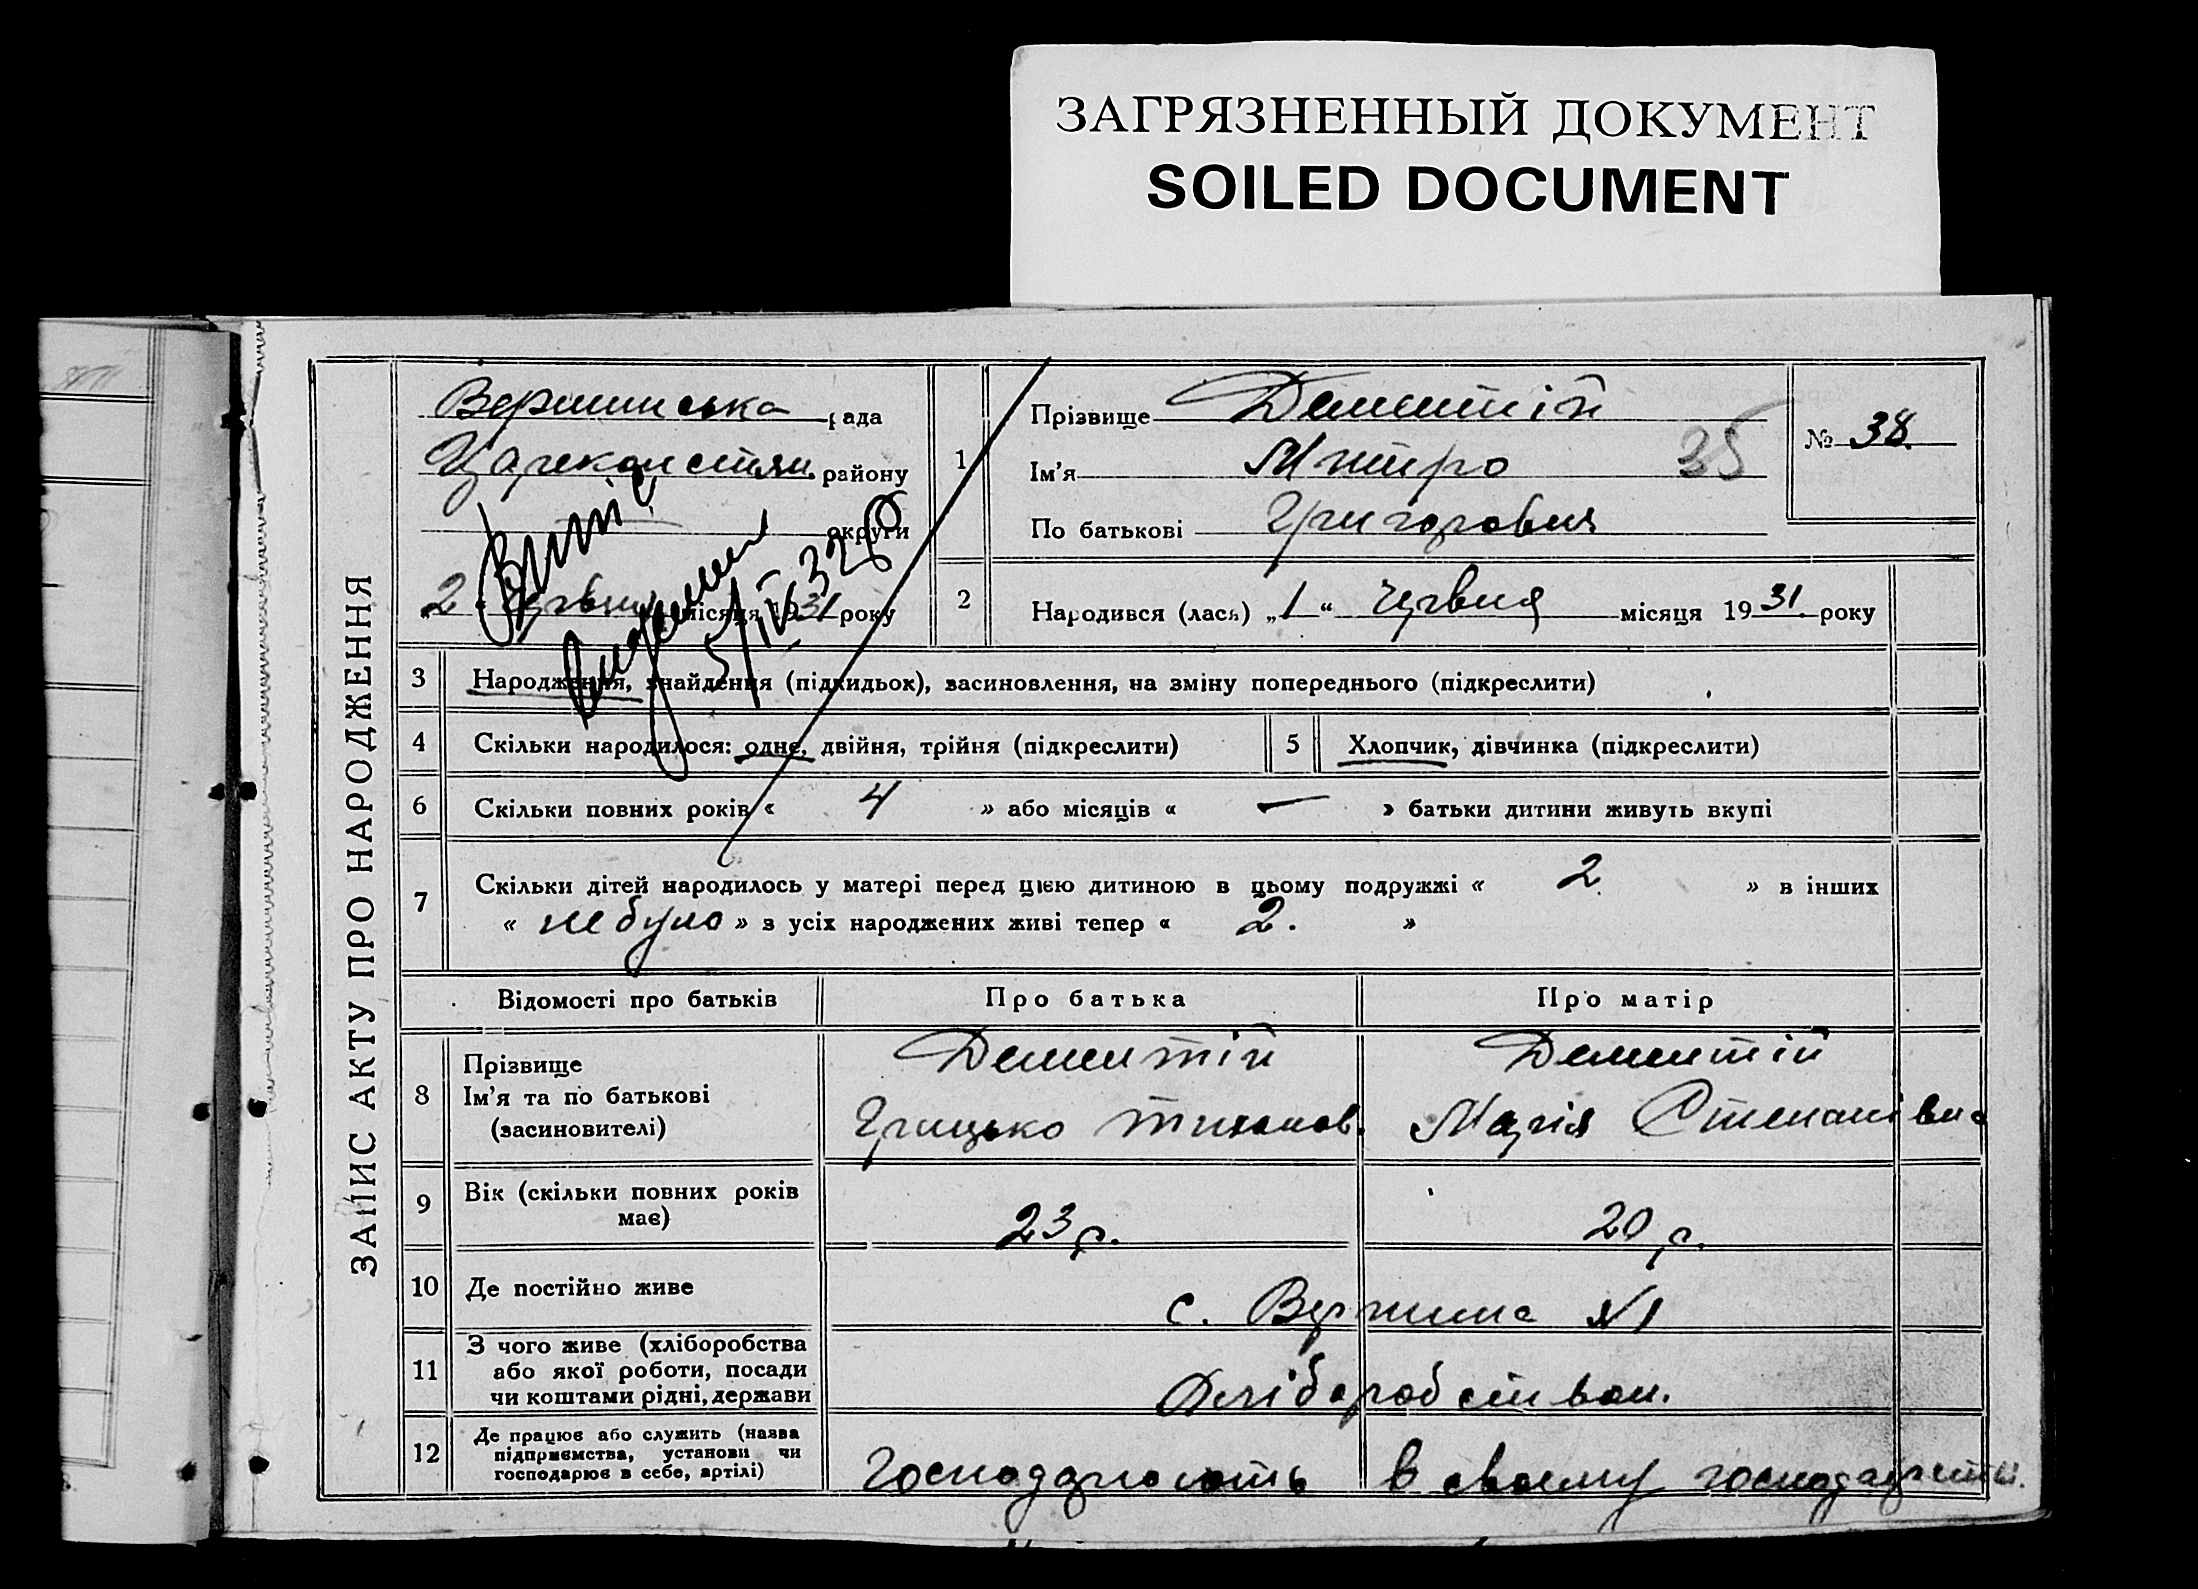 ЗАГРЯЗНЕННЫЙ ДОКУМЕНТ
SOILED DOCUMENT
ЗАПИС АКТУ ПРО НАРОДЖЕННЯ
Вершинська рада
району
округи
„2“ червня місяця 1931 року
5/IV 32
1
Прізвище Дементій
Ім'я Митро 35
По батькові Григорович
№ 38.
2
Народився (лась) „1“ червня місяця 1931 року
3 Народження, знайдення (підкидьох), засиновлення, на зміну попереднього (підкреслити)
4 Скільки народилося: одне, двійня, трійня (підкреслити)
5 Хлопчик, дівчинка (підкреслити)
6 Скільки повних років « 4 » або місяців « — » батьки дитини живуть вкупі
7 Скільки дітей народилось у матері перед цією дитиною в цьому подружжі « 2 » в інших
« не було » з усіх народжених живі тепер « 2. »
Відомості про батьків Про батька Про матір
8 Прізвище
Ім'я та по батькові
(засиновителі)
Дементій
Грицько Тихонов.
Дементій
Марія Степанівна
9 Вік (скільки повних років
має)
23 р. 20 р.
10 Де постійно живе с. Вершина №1
11 З чого живе (хліборобства
або якої роботи, посади
чи коштами рідні, держави
Хліборобством.
12 Де працює або служить (назва
підприємства, установи чи
господарює в себе, артілі)
Господарюють в своєму